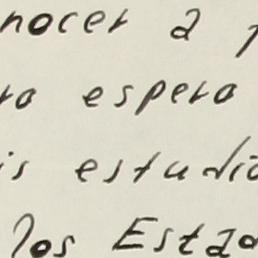 nocer a p
ra espero
is estudio
los Estad